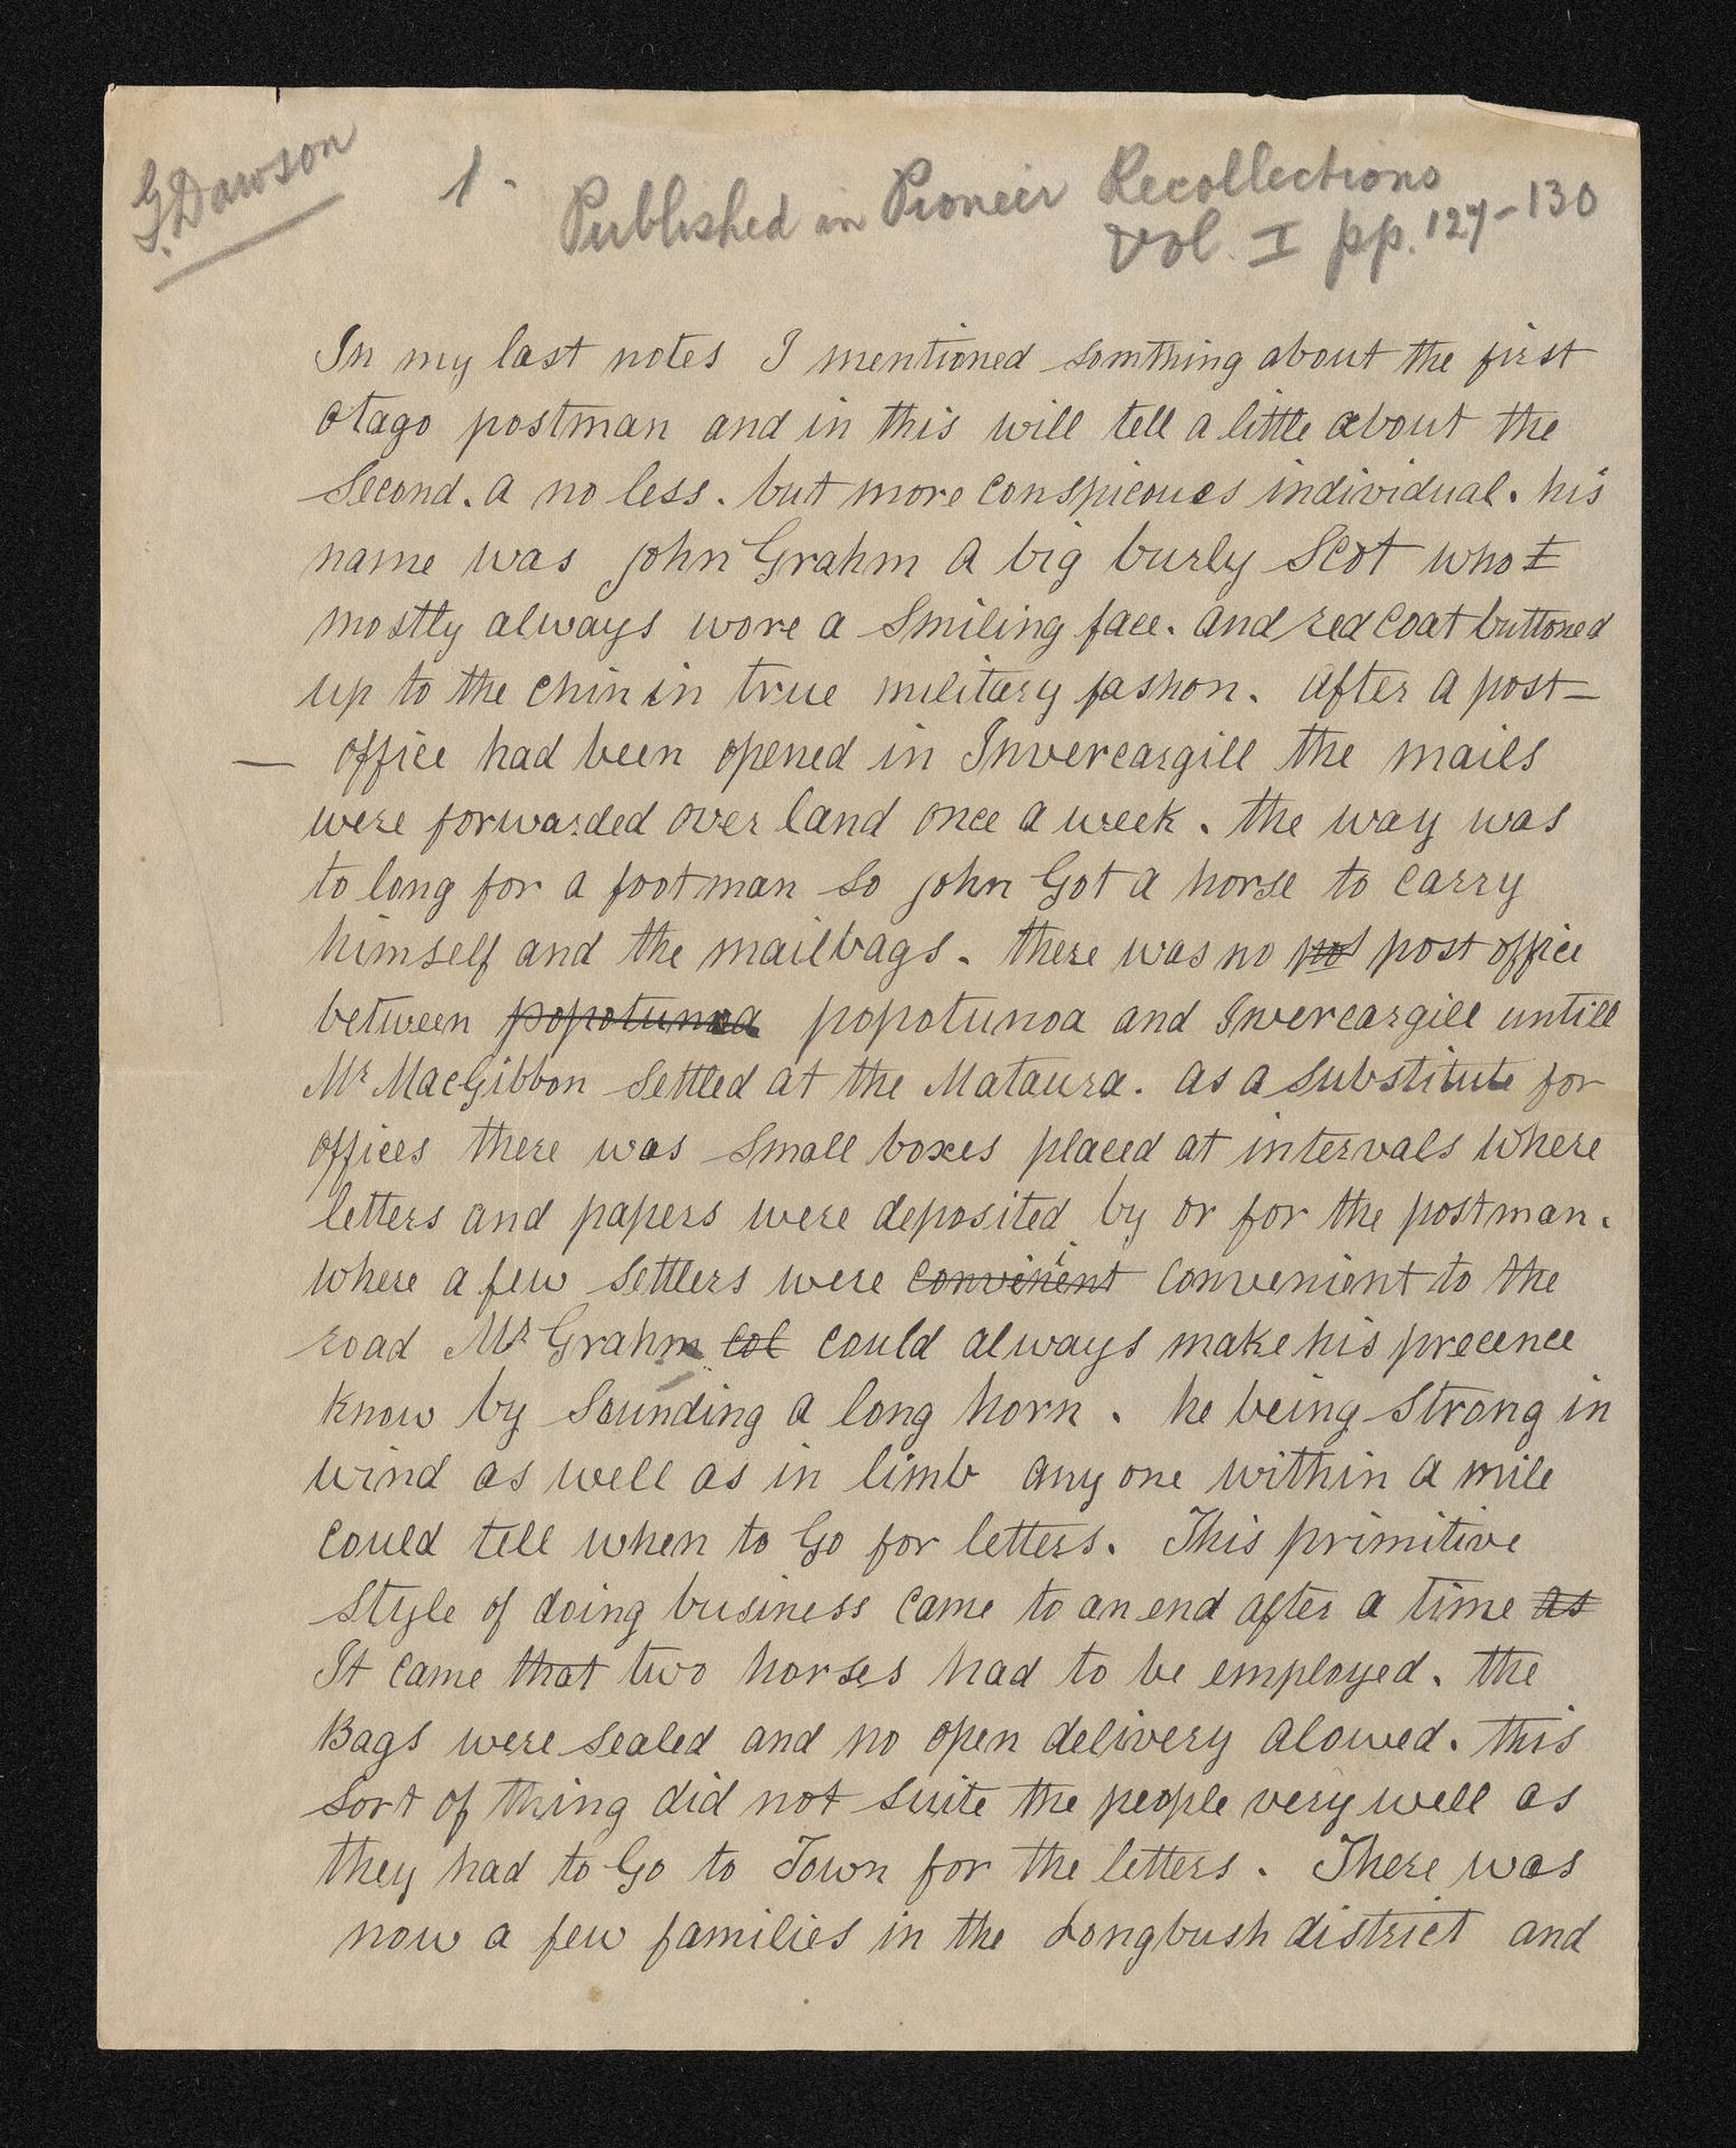 G. Dawson
1.
Published in Pioneer Recollections
Vol. I pp. 127-130
In my last notes I mentioned somthing about the first
otago postman and in this will tell a little about the
Second. a no less. but more conspicoues individual. his
name was john Grahm a big burly Scot who ~~I~~
mostly always wore a Smiling face. and red coat buttoned
up to the chin in true military fashon. after a post—
— office had been opened in Invercargill the mails
were forwarded over land once a week. the way was
to long for a footman so john Got a horse to carry
himself and the mailbags. there was no ~~pos~~ post office
between ~~popotunoa~~ popotunoa and Invercargill untill
Mr MacGibbon settled at the Mataura. as a substitute for
offices there was small boxes placed at intervals where
letters and papers were deposited by or for the postman.
where a few settlers were ~~convinient~~ convenient to the
road Mr Grahm ~~col~~ could always make his precence
know by Sounding a long horn. he being strong in
wind as well as in limb any one within a mile
could tell when to Go for letters. This primitive
style of doing business came to an end after a time ~~as~~
It came ~~that~~ two horses had to be employed. the
Bags were sealed and no open delivery alowed. this
sort of thing did not suite the people very well as
they had to Go to Town for the letters. There was
now a few families in the Longbush district and